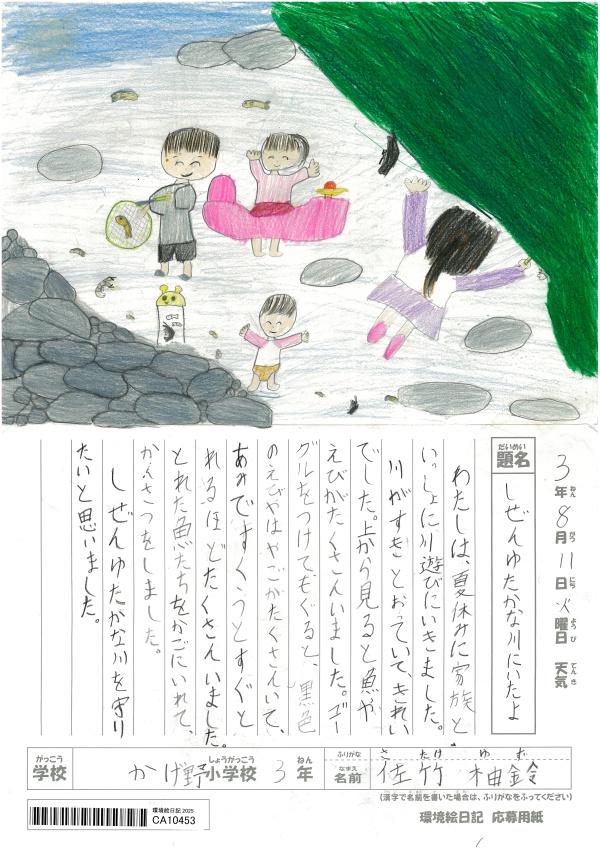 3年8月11日火曜日 天気
ねん がつ にち ようび てんき
だいめい
題名 しぜんゆたかな川にいたよ
わたしは、夏休みに家族と
いっしょに川遊びにいきました。
川がすきとおっていて、きれい
でした。上から見ると魚や
えびがたくさんいました。ゴー
グルをつけてもぐると、黒色
のえびやはやごがたくさんいて、
あみですくうとすぐと
れるほどたくさんいました。
とれた魚たちをかごにいれて、
かんさつをしました。
しぜんゆたかな川を守り
たいと思いました。
がっこう しょうがっこう ねん
学校 かげ野小学校 3年
ふりがな さたけ ゆず
なまえ
名前 佐竹 柚鈴
(漢字で名前を書いた場合は、ふりがなをふってください)
環境絵日記 応募用紙
環境絵日記 2025
CA10453